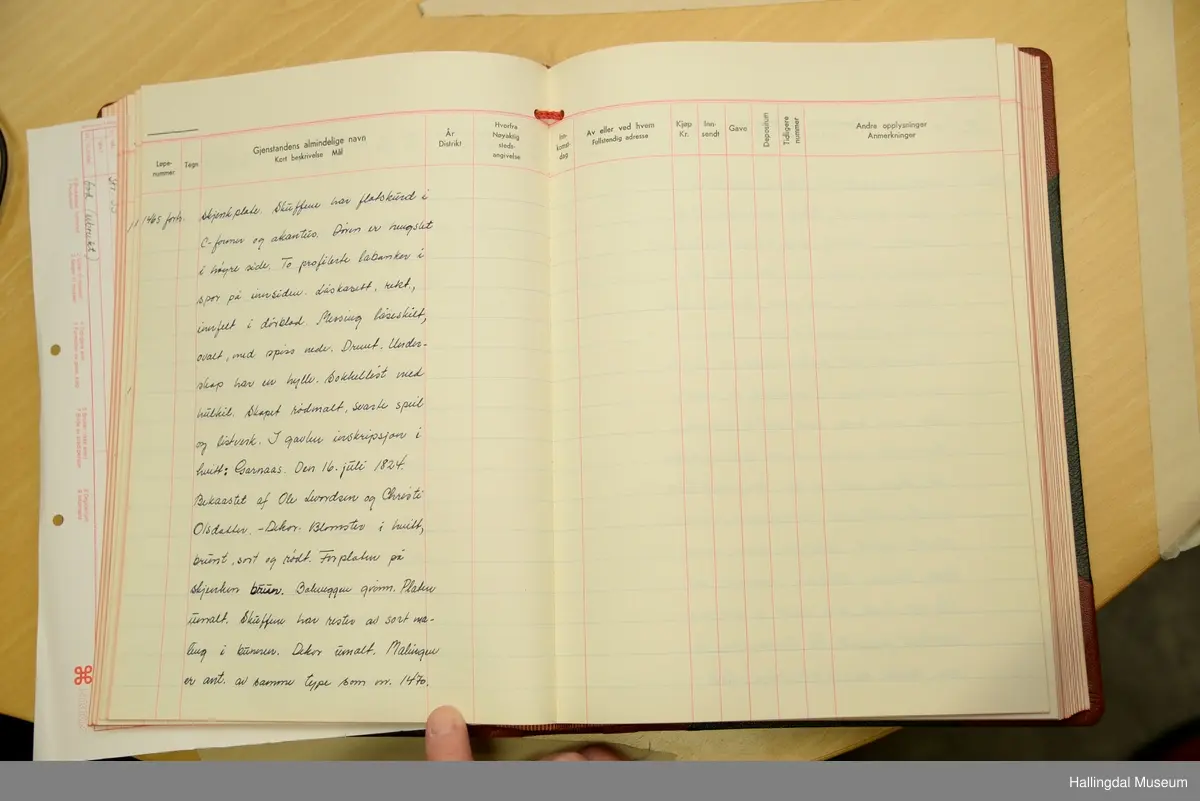 Løpe-
nummer
Tegn.
Gjenstandens almindelige navn
Kort beskrivelse Mål
År
Distrikt
Hvorfra
Nøyaktig
steds-
angivelse
Inn-
komst-
dag
Av eller ved hvem
Fullstendig adresse
Kjøp
Kr.
Inn-
sendt
Gave
Depositum
Tidligere
nummer
Andre opplysninger
Anmerkninger
1465 forts. skjenkplate. Skuffene har flatskurd i
C-former og akantus. Døren er hengslet
i høyre side. To profilerte labanker i
spor på innsiden. Låskasett, rekt.,
innfelt i dørblad. Messing låseskilt,
ovalt, med spiss nede. Druet. Under-
skap har en hylle. Sokkellist med
hulkil. Skapet rødmalt, svarte speil
og listverk. I gavlen inskripsjon i
hvitt: Garnaas. Den 16. juli 1824.
Bekaastet af Ole Svendsen og Christi
Olsdatter. - Dekor. Blomster i hvitt,
brunt, sort og rødt. Forplaten på
skjenken brun. Bakveggen grønn. Platen
umalt. Skuffene har rester av sort ma-
ling i bunnen. Dekor umalt. Malingen
er ant. av samme type som nr. 1470.
Hallingdal Museum